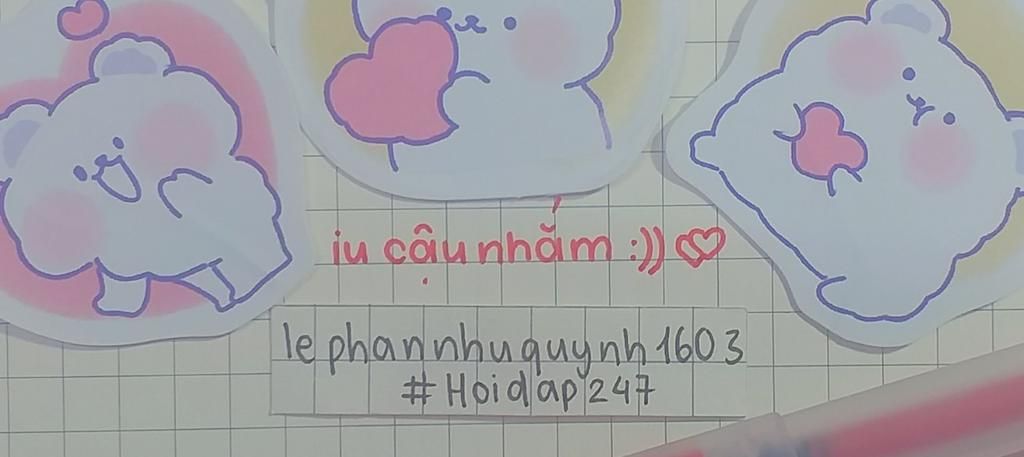 iu cậu nhắm :)) ♡
lephannhuquynh1603
#Hoidap247